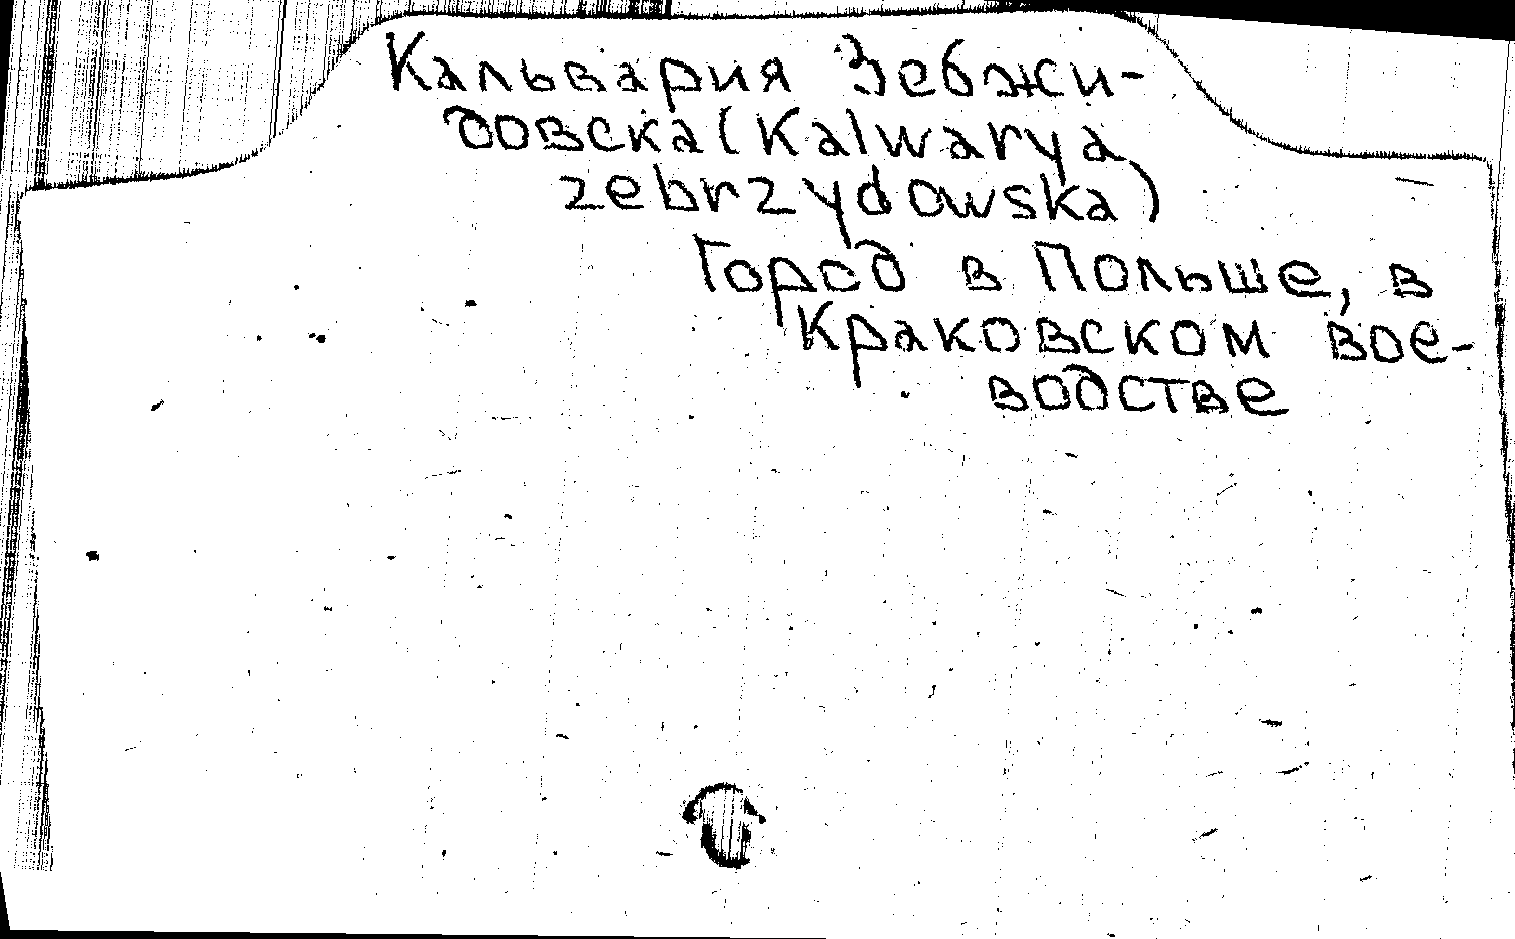 Кальвария Зебжи-
довска (Kalwarya
zebrzydowska)
Город в Польше, в
Краковском вое-
водстве